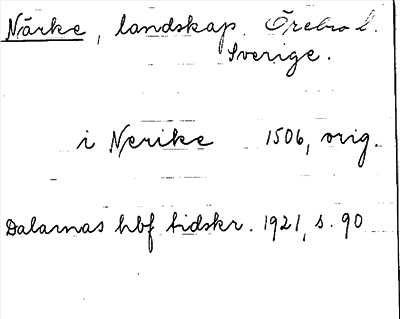 Närke, landskap. Örebro l.
Sverige.
i Nerike 1506, orig.
Dalarnas hbf tidskr. 1921, s. 90